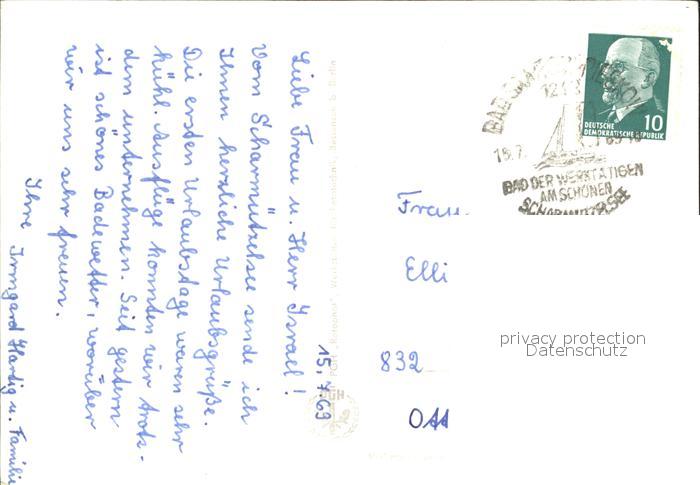 15.7.69
Liebe Frau u. Herr Israel!
Vom Scharmützelsee sende ich
Ihnen herzliche Urlaubsgrüße.
Die ersten Urlaubstage waren sehr
kühl. Ausflüge konnten wir trotz-
dem unternehmen. Seit gestern
ist schönes Badewetter, worüber
wir uns sehr freuen.
Ihre Irmgard Hardig u. Familie
BAD
15.7.
BAD DER WERKTÄTIGEN
AM SCHÖNEN
SCHARMÜTZELSEE
DEUTSCHE
DEMOKRATISCHE REPUBLIK
10
Frau
Elli
832
privacy protection
Datenschutz